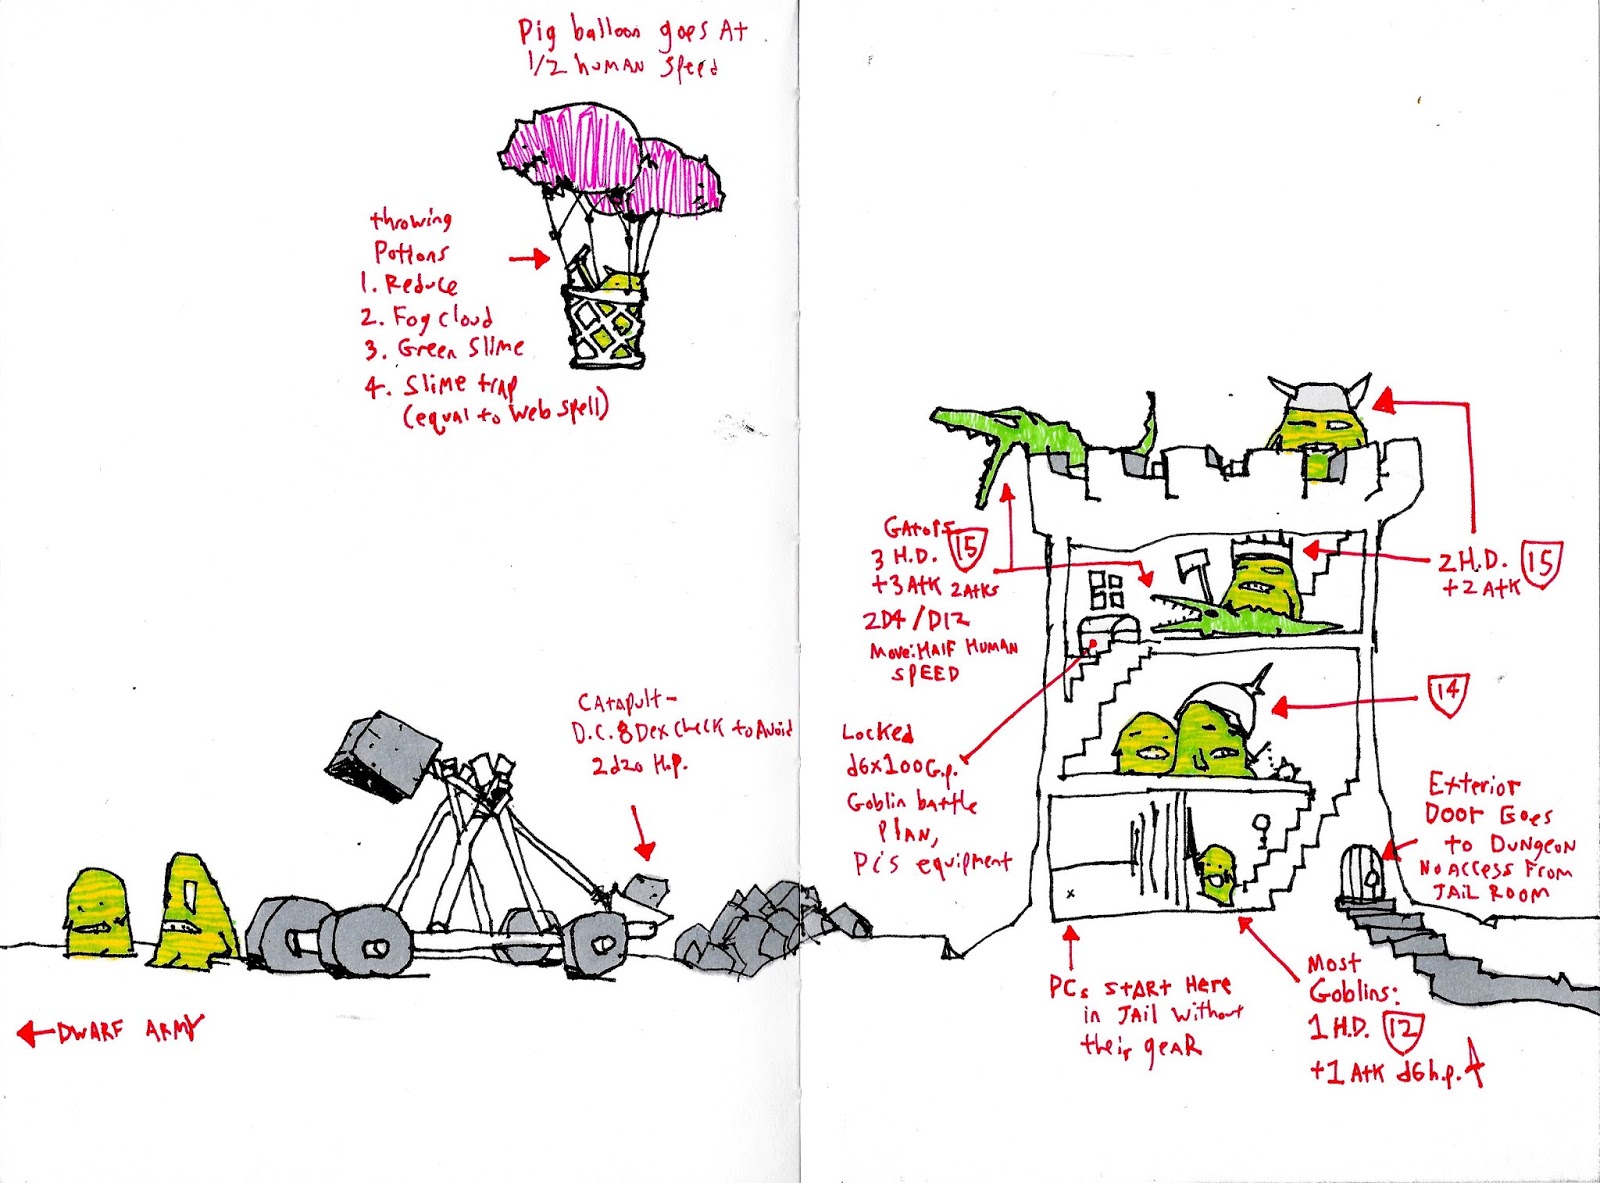 Pig balloon goes At
1/2 human speed
throwing
Potions
1. Reduce
2. Fog cloud
3. Green Slime
4. Slime trap
(equal to Web spell)
Catapult-
D.C. 8 Dex check to Avoid
2d20 H.p.
← DWARF ARMY
Gators
3 H.D. 15
+3 Atk 2 Atks
2D4/D12
Move: Half Human
Speed
2 H.D. 15
+2 Atk
14
Locked
d6x100 G.p.
Goblin battle
Plan,
Pc's equipment
Exterior
Door Goes
to Dungeon
No Access From
Jail Room
PCs Start Here
in Jail Without
their gear
Most
Goblins:
1 H.D. 12
+1 Atk d6 h.p.